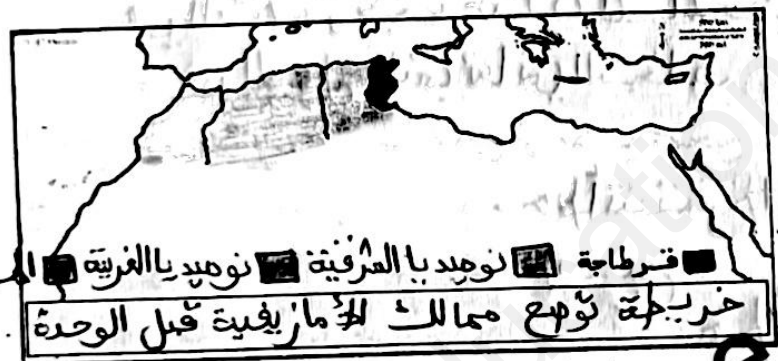 قرطاجة نوميديا الشرقية نوميديا الغربية
خريطة توضح ممالك الأمازيغية قبل الوحدة